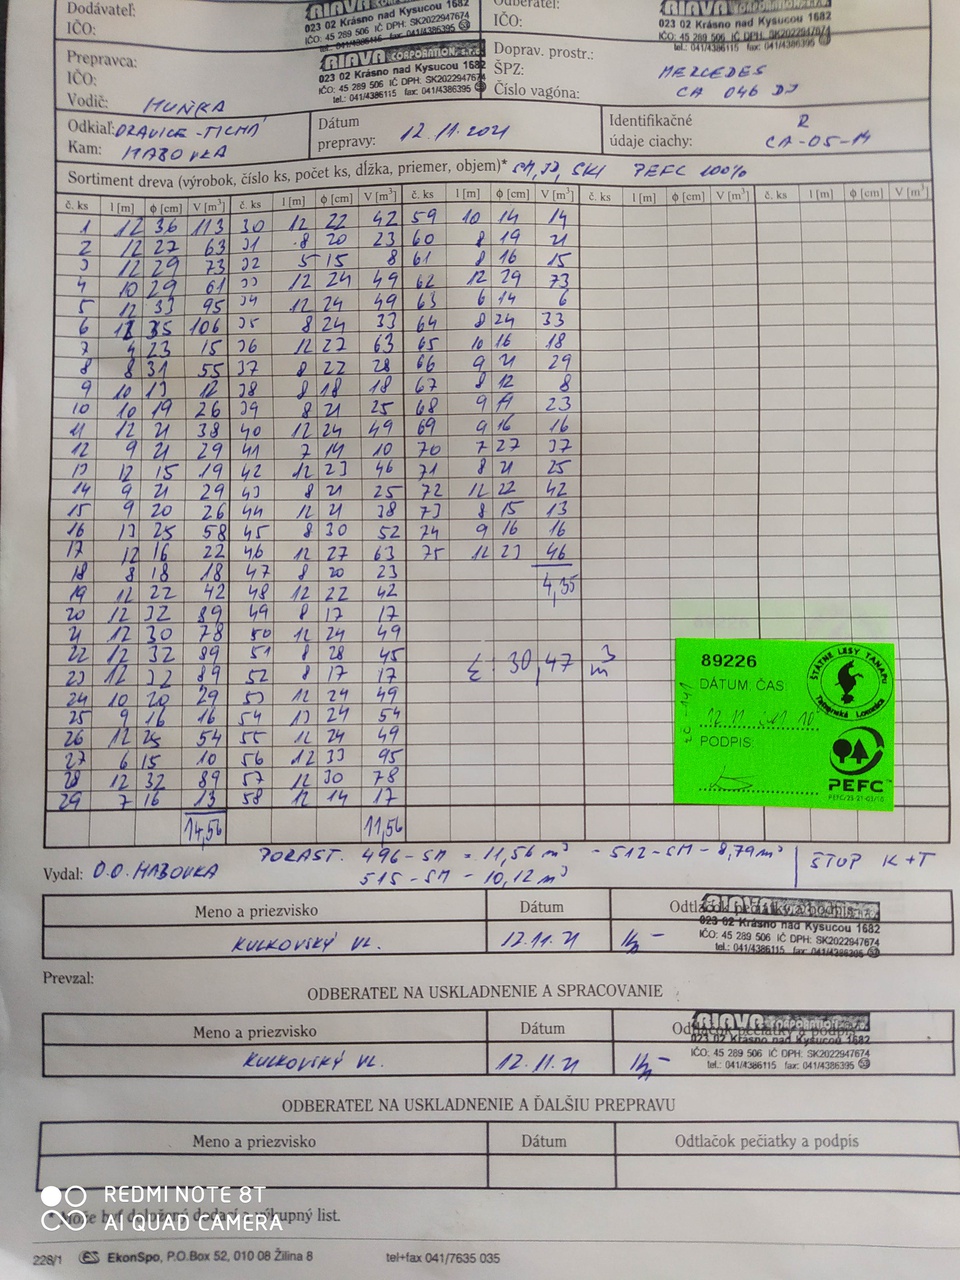 Dodávateľ:
IČO:
RIAVA CORPORATION, s.r.o.
023 02 Krásno nad Kysucou 1682
IČO: 45 289 506 IČ DPH: SK2022947674
tel.: 041/4386115 fax: 041/4386395
Odberateľ:
IČO:
RIAVA
023 02 Krásno nad Kysucou 1682
IČO: 45 289 506 IČ DPH: SK2022947674
tel.: 041/4386115 fax: 041/4386395
Prepravca:
IČO:
RIAVA CORPORATION, s.r.o.
023 02 Krásno nad Kysucou 1682
IČO: 45 289 506 IČ DPH: SK2022947674
tel.: 041/4386115 fax: 041/4386395
Vodič: HUŇKA
Doprav. prostr.: MERCEDES
ŠPZ: CA 046 DJ
Číslo vagóna:
Odkiaľ: ORAVICE - TICHÁ
Kam: HABOVKA
Dátum prepravy: 12.11.2021
Identifikačné údaje ciachy: R CA-05-14
Sortiment dreva (výrobok, číslo ks, počet ks, dĺžka, priemer, objem)* PEFC 100%
č. ks l [m] ϕ [cm] V [m³] č. ks l [m] ϕ [cm] V [m³] č. ks l [m] ϕ [cm] V [m³] č. ks l [m] ϕ [cm] V [m³] č. ks l [m] ϕ [cm] V [m³]
1 12 36 113 30 12 22 42 59 10 14 14
2 12 27 63 31 8 20 23 60 8 19 21
3 12 29 73 32 5 15 8 61 8 16 15
4 10 29 61 33 12 24 49 62 12 29 73
5 12 33 95 34 12 24 49 63 6 14 6
6 12 35 106 35 8 24 33 64 8 24 33
7 4 23 15 36 12 27 63 65 10 16 18
8 8 31 55 37 8 22 28 66 9 21 29
9 10 13 12 38 8 18 18 67 8 12 8
10 10 19 26 39 8 21 25 68 9 19 23
11 12 21 38 40 12 24 49 69 9 16 16
12 9 21 29 41 7 14 10 70 7 27 37
13 12 15 19 42 12 23 46 71 8 21 25
14 9 21 29 43 8 21 25 72 12 22 42
15 9 20 26 44 12 21 38 73 8 15 13
16 13 25 58 45 8 30 52 74 9 16 16
17 12 16 22 46 12 27 63 75 12 23 46
18 8 18 18 47 8 20 23
4,35
19 12 22 42 48 12 22 42
20 12 32 89 49 8 17 17
21 12 30 78 50 12 24 49
22 12 32 89 51 8 28 45
Σ: 30,47 m³
23 12 32 89 52 8 17 17
24 10 20 29 53 12 24 49
25 9 16 16 54 13 24 54
26 12 25 54 55 12 24 49
27 6 15 10 56 12 33 95
28 12 32 89 57 12 30 78
29 7 16 13 58 12 14 17
14,56 11,56
89226
ŠTÁTNE LESY TANAPu
Tatranská Lomnica
DÁTUM, ČAS
PODPIS:
PEFC™
Vydal: O.O. HABOVKA
PORAST. 496-SM = 11,56 m³ - 512-SM - 8,79 m³
515-SM - 10,12 m³
ŠTUP K+T
Meno a priezvisko Dátum Odtlačok pečiatky a podpis
KULKOVSKÝ VL. 12.11.21
RIAVA
023 02 Krásno nad Kysucou 1682
IČO: 45 289 506 IČ DPH: SK2022947674
tel.: 041/4386115 fax: 041/4386395
Prevzal:
ODBERATEĽ NA USKLADNENIE A SPRACOVANIE
Meno a priezvisko Dátum Odtlačok pečiatky a podpis
KULKOVSKÝ VL. 12.11.21
RIAVA CORPORATION
023 02 Krásno nad Kysucou 1682
IČO: 45 289 506 IČ DPH: SK2022947674
tel.: 041/4386115 fax: 041/4386395
ODBERATEĽ NA USKLADNENIE A ĎALŠIU PREPRAVU
Meno a priezvisko Dátum Odtlačok pečiatky a podpis
REDMI NOTE 8T
AI QUAD CAMERA
* Môže byť doložený dodací a výkupný list.
228/1 EkonSpo, P.O.Box 52, 010 08 Žilina 8 tel+fax 041/7635 035